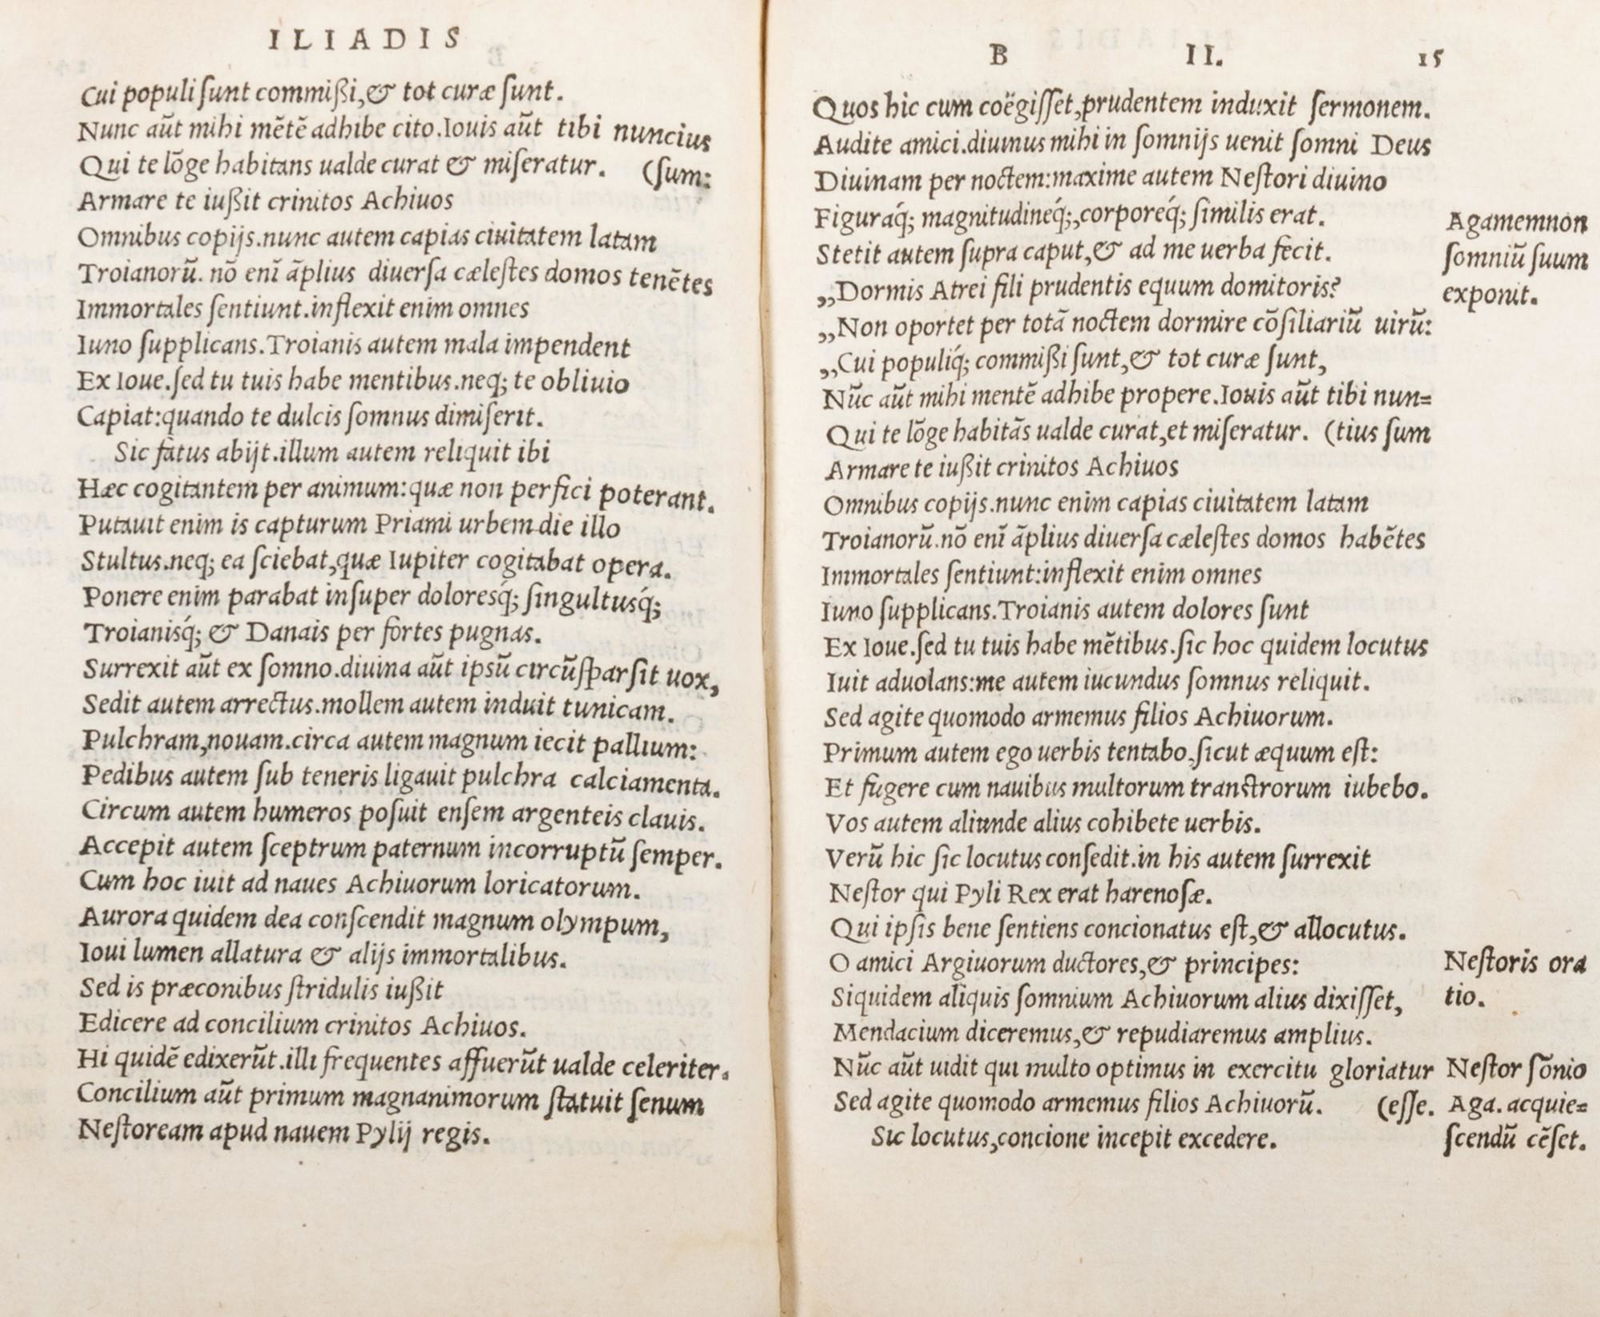 ILIADIS
Cui populi ſunt commißi,& tot curæ ſunt.
Nunc aūt mihi mētē adhibe cito.Iouis aūt tibi nuncius
Qui te lōge habitans ualde curat & miſeratur. (ſum:
Armare te iußit crinitos Achiuos
Omnibus copijs.nunc autem capias ciuitatem latam
Troianorū. nō enī āplius diuerſa cæleſtes domos tenētes
Immortales ſentiunt.inflexit enim omnes
Iuno ſupplicans.Troianis autem mala impendent
Ex Ioue.ſed tu tuis habe mentibus.neq; te obliuio
Capiat:quando te dulcis ſomnus dimiſerit.
Sic fatus abijt.illum autem reliquit ibi
Hæc cogitantem per animum:quæ non perfici poterant.
Putauit enim is capturum Priami urbem die illo
Stultus.neq; ea ſciebat,quæ Iupiter cogitabat opera.
Ponere enim parabat inſuper doloresq́; ſingultusq́;
Troianisq́; & Danais per fortes pugnas.
Surrexit aūt ex ſomno.diuina aūt ipſū circūſparſit uox,
Sedit autem arrectus.mollem autem induit tunicam.
Pulchram,nouam.circa autem magnum iecit pallium:
Pedibus autem ſub teneris ligauit pulchra calciamenta.
Circum autem humeros poſuit enſem argenteis clauis.
Accepit autem ſceptrum paternum incorruptū ſemper.
Cum hoc iuit ad naues Achiuorum loricatorum.
Aurora quidem dea conſcendit magnum olympum,
Ioui lumen allatura & alijs immortalibus.
Sed is præconibus ſtridulis iußit
Edicere ad concilium crinitos Achiuos.
Hi quidē edixerūt.illi frequentes affuerūt ualde celeriter.
Concilium aūt primum magnanimorum ſtatuit ſenum
Neſtoream apud nauem Pylij regis.
B II. 15
Quos hic cum coëgiſſet,prudentem induxit ſermonem.
Audite amici.diuinus mihi in ſomnijs uenit ſomni Deus
Diuinam per noctem:maxime autem Neſtori diuino
Figuraq́; magnitudineq́;,corporeq́; ſimilis erat.
Stetit autem ſupra caput,& ad me uerba fecit.
„Dormis Atrei fili prudentis equum domitoris?
„Non oportet per totā noctem dormire cōſiliariū uirū:
„Cui populiq́; commißi ſunt,& tot curæ ſunt,
Nūc aūt mihi mentē adhibe propere.Iouis aūt tibi nun=
Qui te lōge habitās ualde curat,et miſeratur. (tius ſum
Armare te iußit crinitos Achiuos
Omnibus copijs.nunc enim capias ciuitatem latam
Troianorū.nō enī āplius diuerſa cæleſtes domos habētes
Immortales ſentiunt:inflexit enim omnes
Iuno ſupplicans.Troianis autem dolores ſunt
Ex Ioue.ſed tu tuis habe mētibus.ſic hoc quidem locutus
Iuit aduolans:me autem iucundus ſomnus reliquit.
Sed agite quomodo armemus filios Achiuorum.
Primum autem ego uerbis tentabo.ſicut æquum eſt:
Et fugere cum nauibus multorum tranſtrorum iubebo.
Vos autem aliunde alius cohibete uerbis.
Verū hic ſic locutus conſedit.in his autem ſurrexit
Neſtor qui Pyli Rex erat harenoſæ.
Qui ipſis bene ſentiens concionatus eſt,& allocutus.
O amici Argiuorum ductores,& principes:
Siquidem aliquis ſomnium Achiuorum alius dixiſſet,
Mendacium diceremus,& repudiaremus amplius.
Nūc aūt uidit qui multo optimus in exercitu gloriatur
Sed agite quomodo armemus filios Achiuorū. (eſſe.
Sic locutus,concione incepit excedere.
Agamemnon
ſomniū ſuum
exponit.
Neſtoris ora
tio.
Neſtor ſōnio
Aga. acquie=
ſcendū cēſet.